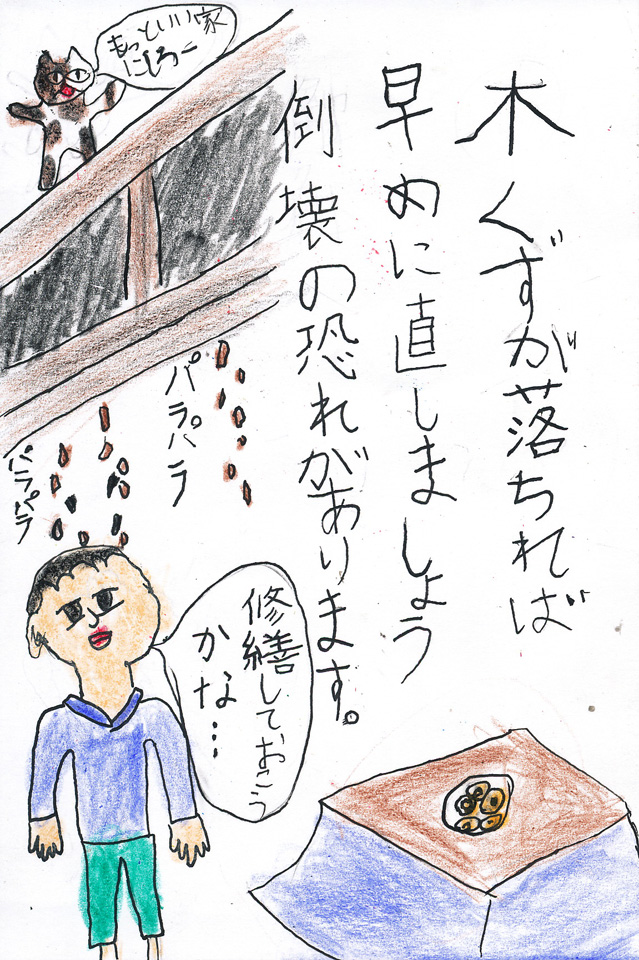 木くずが落ちれば
早めに直しましょう
倒壊の恐れがあります。
もっといい家
にしろー
パラパラ
パラパラ
修繕しておこう
かな…